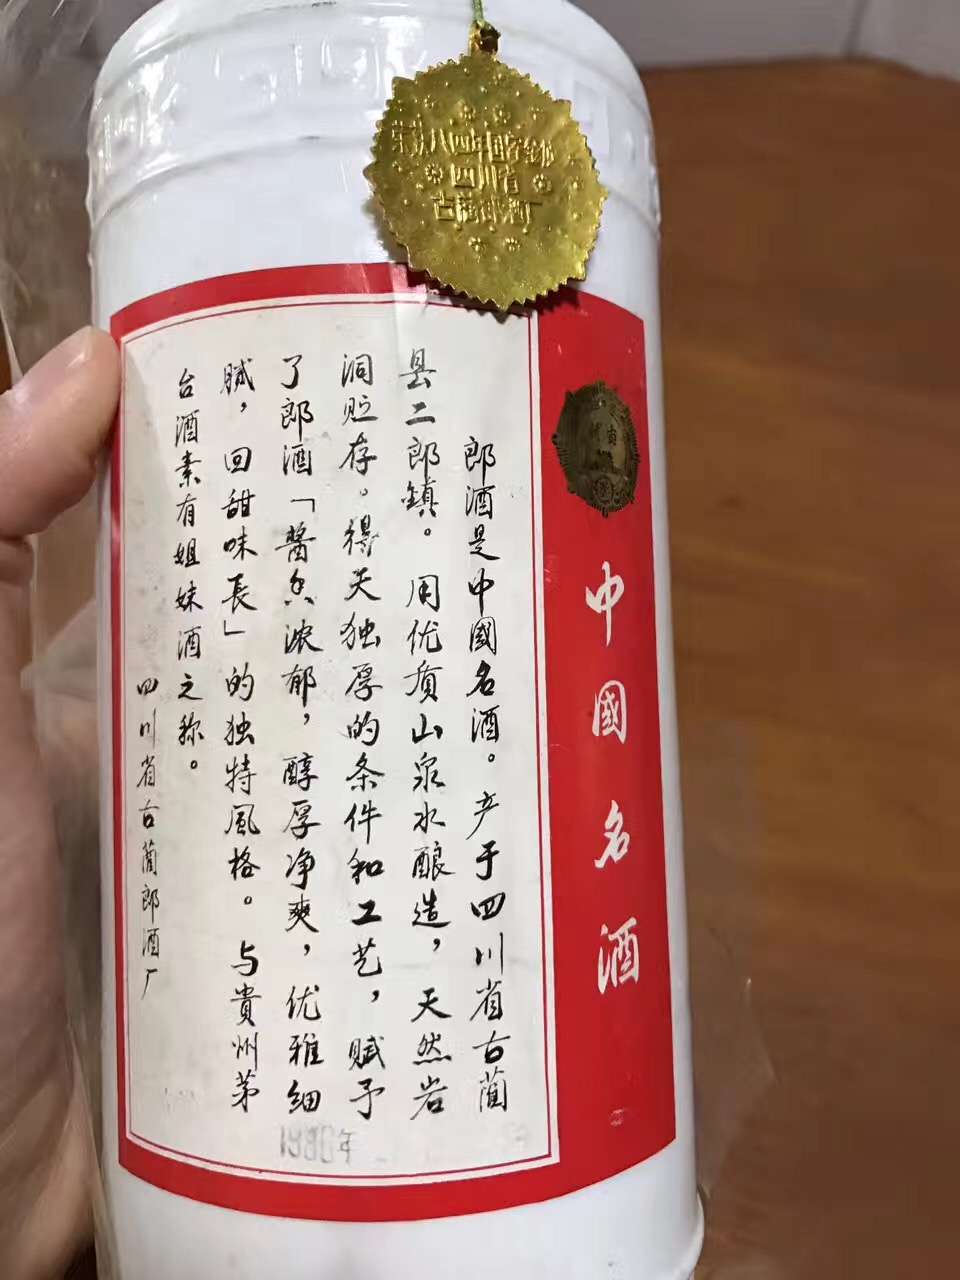 荣获八四年国家金奖
四川省
古蔺郎酒厂
中國名酒
郎酒是中國名酒。产于四川省古蔺
县二郎鎮。用优质山泉水酿造，天然岩
洞贮存。得天独厚的条件和工艺，赋予
了郎酒「醬香浓郁，醇厚净爽，优雅细
腻，回甜味長」的独特風格。与貴州茅
台酒素有姐妹酒之称。
四川省古蔺郎酒厂
1990年